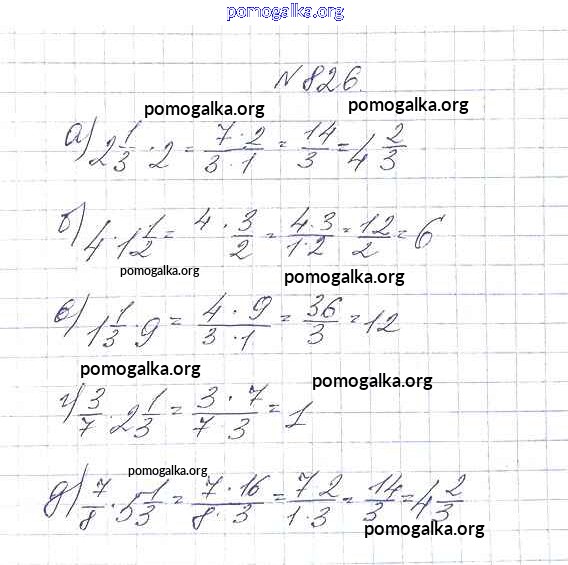 pomogalka.org
№ 826.
pomogalka.org pomogalka.org
а) 2 1/3 · 2 = 7 · 2 / 3 · 1 = 14/3 = 4 2/3
б) 4 · 1 1/2 = 4 · 3/2 = 4 · 3 / 1 · 2 = 12/2 = 6
pomogalka.org pomogalka.org
в) 1 1/3 · 9 = 4 · 9 / 3 · 1 = 36/3 = 12
pomogalka.org pomogalka.org
г) 3/7 · 2 1/3 = 3 · 7 / 7 3 = 1
pomogalka.org
д) 7/8 · 5 1/3 = 7 · 16 / 8 · 3 = 7 2 / 1 · 3 = 14/3 = 4 2/3
pomogalka.org